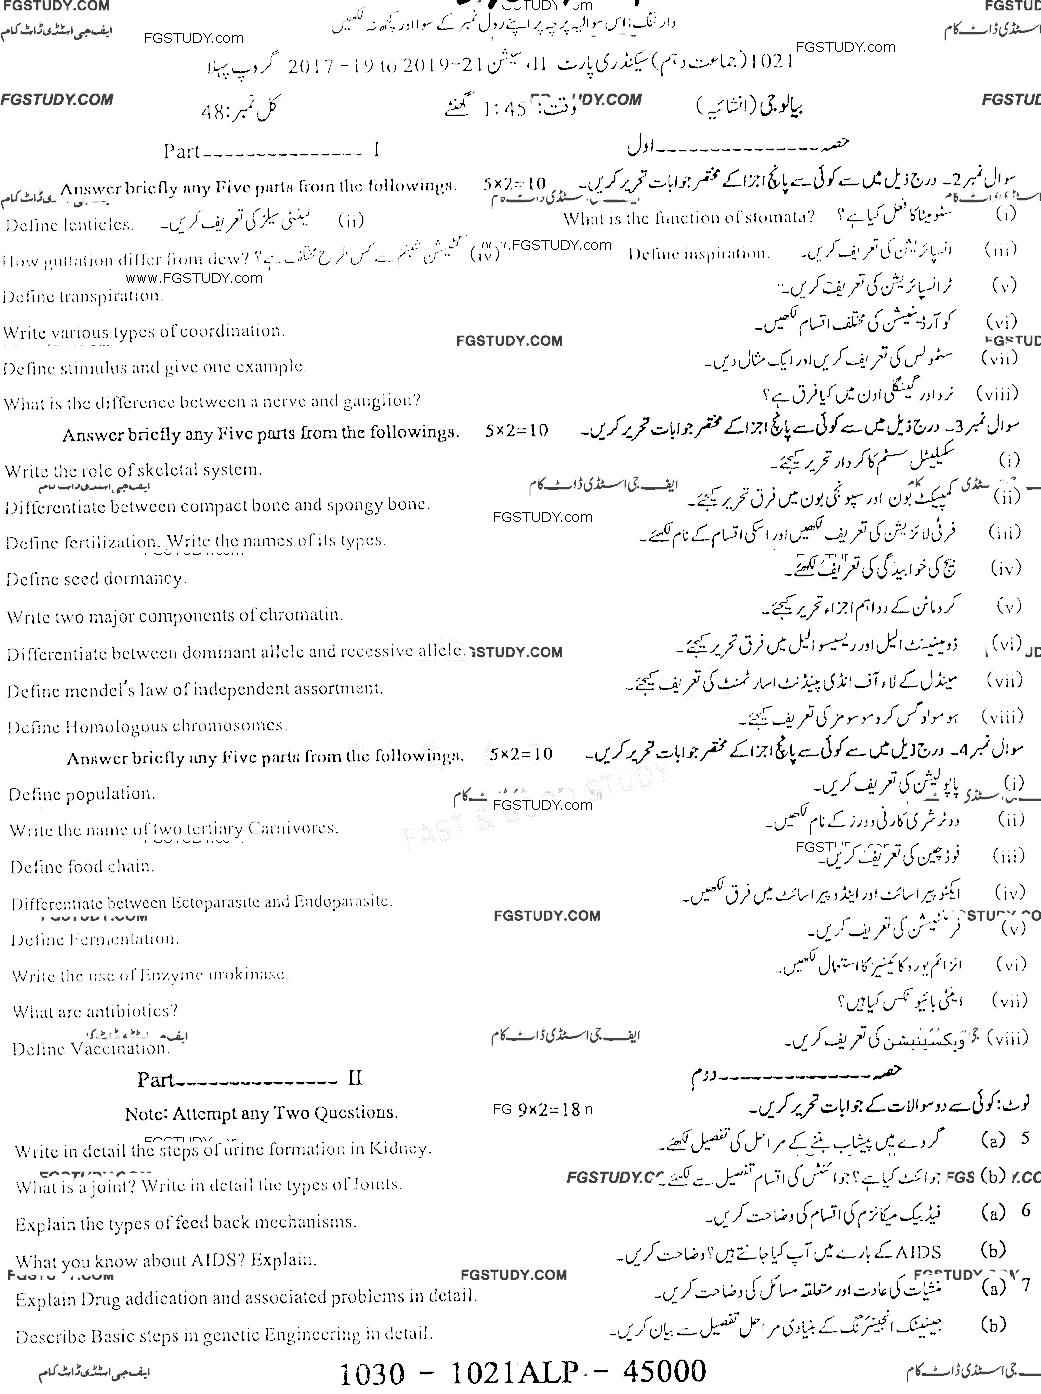 FGSTUDY.COM FGSTUDY.com FGSTUD
ایف جی اسٹڈی ڈاٹ کام وارننگ: اس سوالیہ پرچہ پر اپنے رول نمبر کے سوا اور کچھ نہ لکھیں اسٹڈی ڈاٹ کام
FGSTUDY.com FGSTUDY.com
1021 (جماعت دہم) سیکنڈری پارٹ II، سیشن 21-2019 to 19-2017 گروپ پہلا
FGSTUDY.COM DY.COM FGSTUD
بیالوجی (انشائیہ) وقت: 1:45 گھنٹے کل نمبر: 48
Part---------------- I حصہ----------------اول
Answer briefly any Five parts from the followings. 5×2=10 سوال نمبر 2۔ درج ذیل میں سے کوئی سے پانچ اجزا کے مختصر جوابات تحریر کریں۔
Define lenticles. لینٹی سیلز کی تعریف کریں۔ (ii) What is the function of stomata? سٹومیٹا کا فعل کیا ہے؟ (i)
How guttation differ from dew? گٹیشن شبنم سے کس طرح مختلف ہے؟ (iv) www.FGSTUDY.com Define inspiration. انسپائریشن کی تعریف کریں۔ (iii)
www.FGSTUDY.com
Define transpiration. ٹرانسپائریشن کی تعریف کریں۔ (v)
Write various types of coordination. کوآرڈینیشن کی مختلف اقسام لکھیں۔ (vi)
FGSTUDY.COM FGSTUD
Define stimulus and give one example. سٹمولس کی تعریف کریں اور ایک مثال دیں۔ (vii)
What is the difference between a nerve and ganglion? نرو اور گینگلی اون میں کیا فرق ہے؟ (viii)
Answer briefly any Five parts from the followings. 5×2=10 سوال نمبر 3۔ درج ذیل میں سے کوئی سے پانچ اجزا کے مختصر جوابات تحریر کریں۔
Write the role of skeletal system. سکیلیٹل سسٹم کا کردار تحریر کیجئے۔ (i)
ایف جی اسٹڈی ڈاٹ کام ایف جی اسٹڈی ڈاٹ کام
Differentiate between compact bone and spongy bone. کمپیکٹ بون اور سپونجی بون میں فرق تحریر کیجئے۔ (ii)
FGSTUDY.com
Define fertilization. Write the names of its types. فرٹیلائزیشن کی تعریف لکھیں اور اسکی اقسام کے نام لکھئے۔ (iii)
Define seed dormancy. بیج کی خوابیدگی کی تعریف لکھئے۔ (iv)
Write two major components of chromatin. کروماٹن کے دو اہم اجزاء تحریر کیجئے۔ (v)
Differentiate between dominant allele and recessive allele. GSTUDY.COM ڈومیننٹ الیل اور ریسیسو الیل میں فرق تحریر کیجئے۔ (vi)
Define mendel's law of independent assortment. مینڈل کے لاء آف انڈی پینڈنٹ اسارٹمنٹ کی تعریف کیجئے۔ (vii)
Define Homologous chromosomes. ہومولوگس کروموسومز کی تعریف کیجئے۔ (viii)
Answer briefly any Five parts from the followings. 5×2=10 سوال نمبر 4۔ درج ذیل میں سے کوئی سے پانچ اجزا کے مختصر جوابات تحریر کریں۔
Define population. پاپولیشن کی تعریف کریں۔ (i)
FGSTUDY.com
Write the name of two tertiary Carnivores. دو ٹرشری کارنی وورز کے نام لکھیں۔ (ii)
Define food chain. فوڈ چین کی تعریف کریں۔ (iii)
Differentiate between Ectoparasite and Endoparasite. ایکٹو پیراسائٹ اور اینڈو پیراسائٹ میں فرق لکھیں۔ (iv)
FGSTUDY.COM FGSTUDY.COM STUDY.CO
Define Fermentation. فرمنٹیشن کی تعریف کریں۔ (v)
Write the use of Enzyme urokinase. انزائم یوروکائینیز کا استعمال لکھیں۔ (vi)
What are antibiotics? اینٹی بائیوٹکس کیا ہیں؟ (vii)
ایف جی اسٹڈی ڈاٹ کام
Define Vaccination. ویکسینیشن کی تعریف کریں۔ (viii)
Part---------------- II حصہ----------------دوم
Note: Attempt any Two Questions. FG 9×2=18 n نوٹ: کوئی سے دو سوالات کے جوابات تحریر کریں۔
Write in detail the steps of urine formation in Kidney. گردے میں پیشاب بننے کے مراحل کی تفصیل لکھئے۔ (a) 5
What is a joint? Write in detail the types of Joints. FGSTUDY.C جوائنٹ کیا ہے؟ جوائنٹس کی اقسام تفصیل سے لکھئے FGS (b) Y.CO
Explain the types of feed back mechanisms. فیڈ بیک میکانزم کی اقسام کی وضاحت کریں۔ (a) 6
What you know about AIDS? Explain. AIDS کے بارے میں آپ کیا جانتے ہیں؟ وضاحت کریں۔ (b)
FGSTUDY.COM FGSTUDY.COM FGSTUDY
Explain Drug addication and associated problems in detail. منشیات کی عادت اور متعلقہ مسائل کی وضاحت کریں۔ (a) 7
Describe Basic steps in genetic Engineering in detail. جینیٹک انجینئرنگ کے بنیادی مراحل تفصیل سے بیان کریں۔ (b)
ایف جی اسٹڈی ڈاٹ کام 1030 - 1021ALP - 45000 جی اسٹڈی ڈاٹ کام